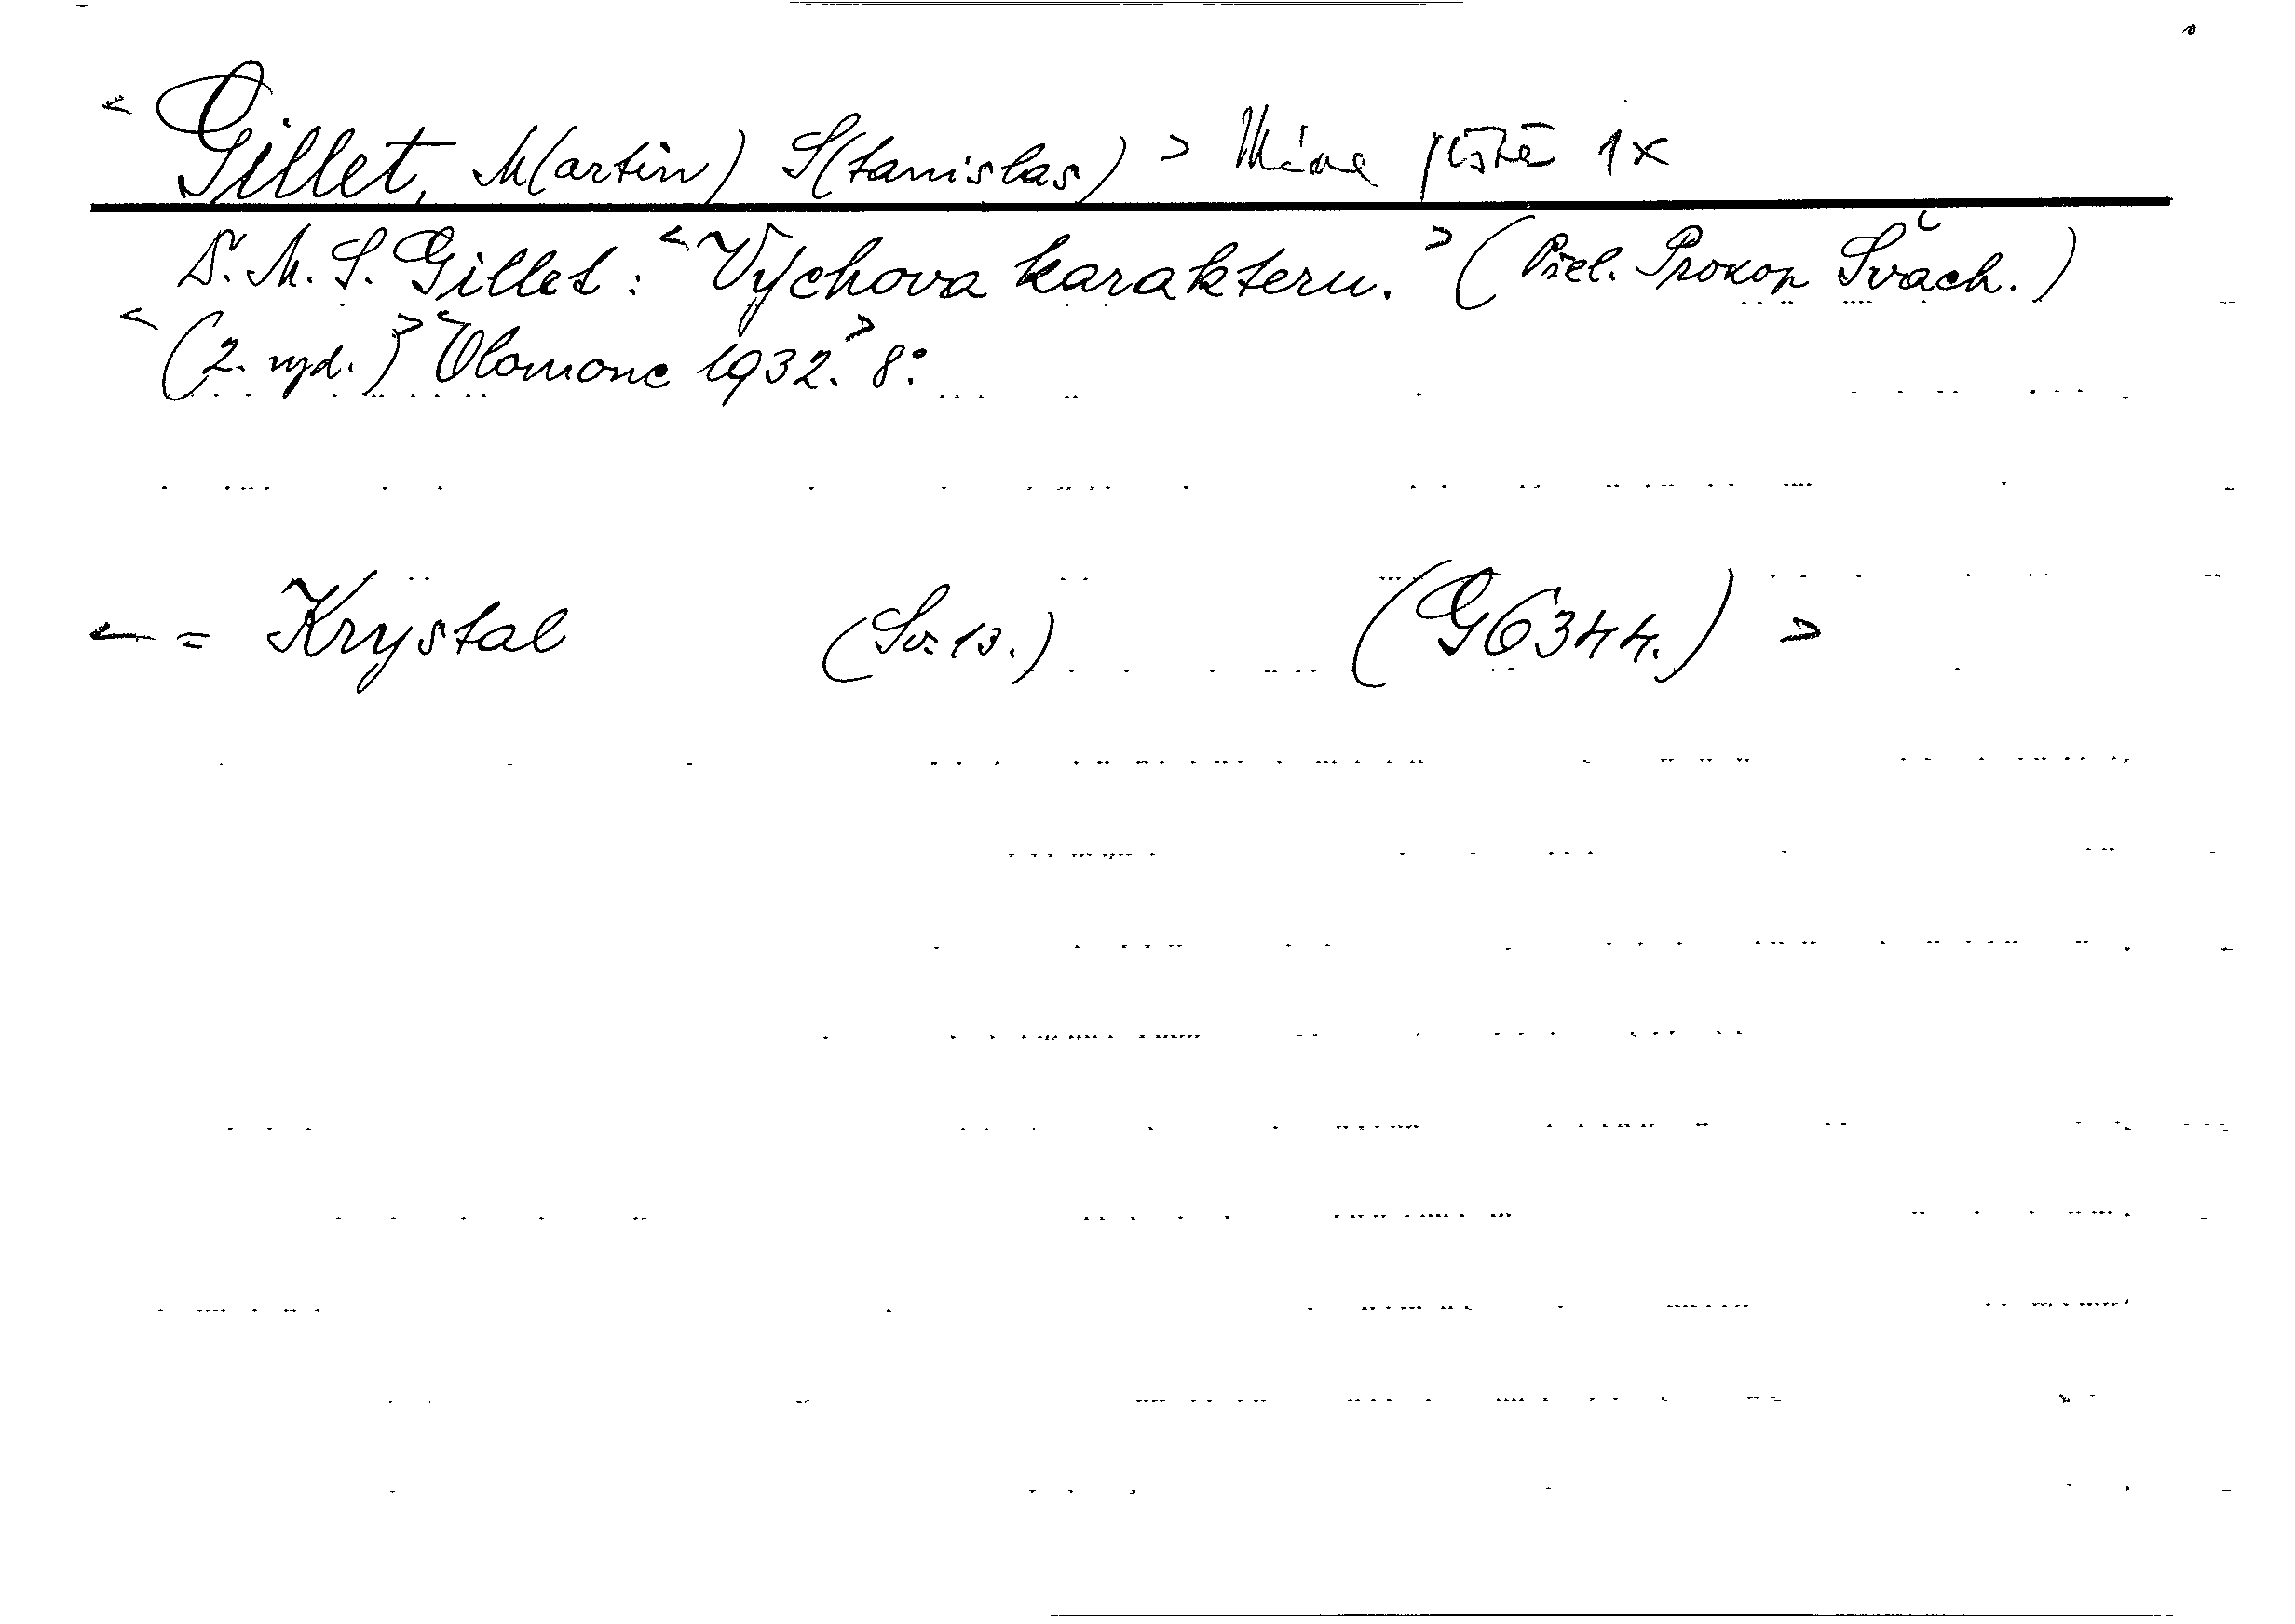 < Gillet, M(artin) S(tanislas) > Máme ještě 1x
D. M. S. Gillet: < Výchova karakteru. > (Přel. Prokop Švach.)
< (2. vyd.) > < Olomouc 1932. > 8°.
← = Krystal (Sv. 13.) (G 6344.) >